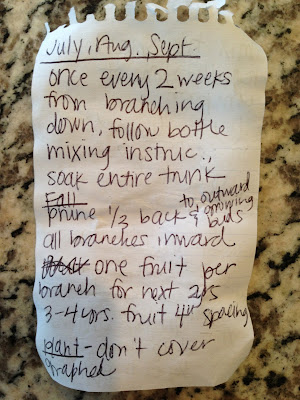 July, Aug., Sept.
once every 2 weeks
from branching
down, follow bottle
mixing instruc.,
soak entire trunk
Fall
prune 1/3 back & to outward growing buds
all branches inward
one fruit per
branch for next 2yrs
3-4 yrs. fruit 4" spacing
plant - don't cover
graphed